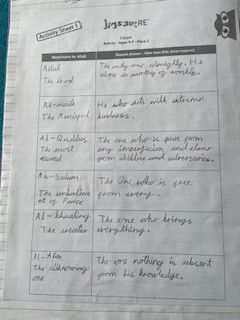 Activity Sheet 1
jigsaw RE
Islam
Activity - Ages 8-9 - Piece 2
Word/name for Allah
Reason chosen - How does this show respect?
Allah
The God
The only one almighty. He
alone is worthy of worship.
The Merciful
He who acts with extreme
kindness.
Al - Quddus
The most
sacred
The one who is pure from
any imperfection and clear
from children and adversaries.
As-Salam
The embodiment
of Peace
The One who is free
from every.
The creator
The one who brings
everything.
The allknowing
one
The one nothing is absent
from his knowledge.